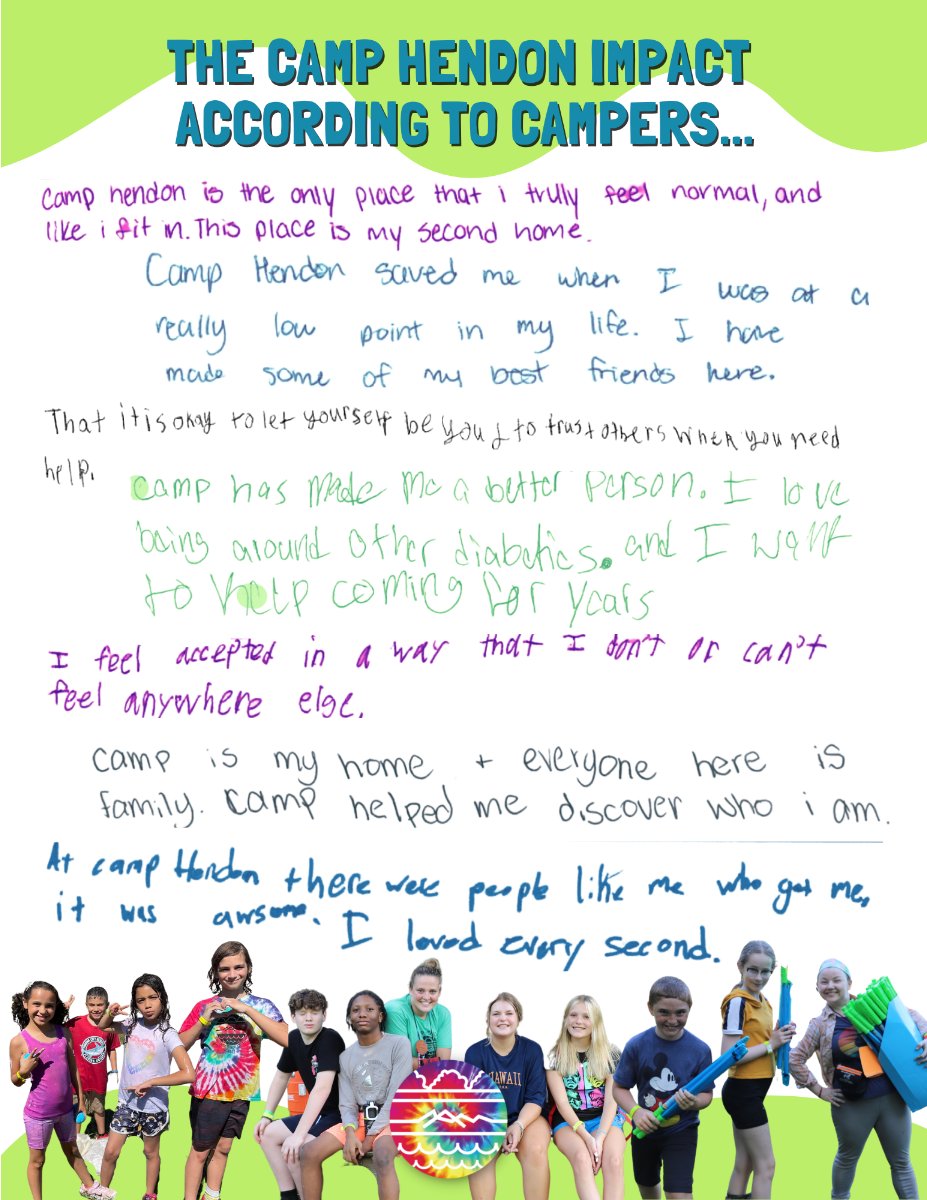 THE CAMP HENDON IMPACT
ACCORDING TO CAMPERS...
Camp hendon is the only place that i truly feel normal, and
like i fit in. This place is my second home.
Camp Hendon saved me when I was at a
really low point in my life. I have
made some of my best friends here.
That it is okay to let yourself be you & to trust others when you need
help.
camp has made me a better person. I love
being around other diabetics. and I want
to help coming for years
I feel accepted in a way that I don't or can't
feel anywhere else.
camp is my home + everyone here is
family. Camp helped me discover who i am.
At camp Hendon there were people like me who get me,
it was awsome. I loved every second.
HAWAII